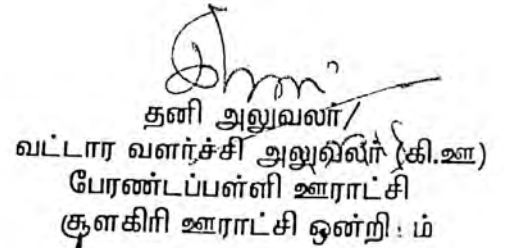 தனி அலுவலர்/
வட்டார வளர்ச்சி அலுவலர் (கி.ஊ)
பேரண்டப்பள்ளி ஊராட்சி
சூளகிரி ஊராட்சி